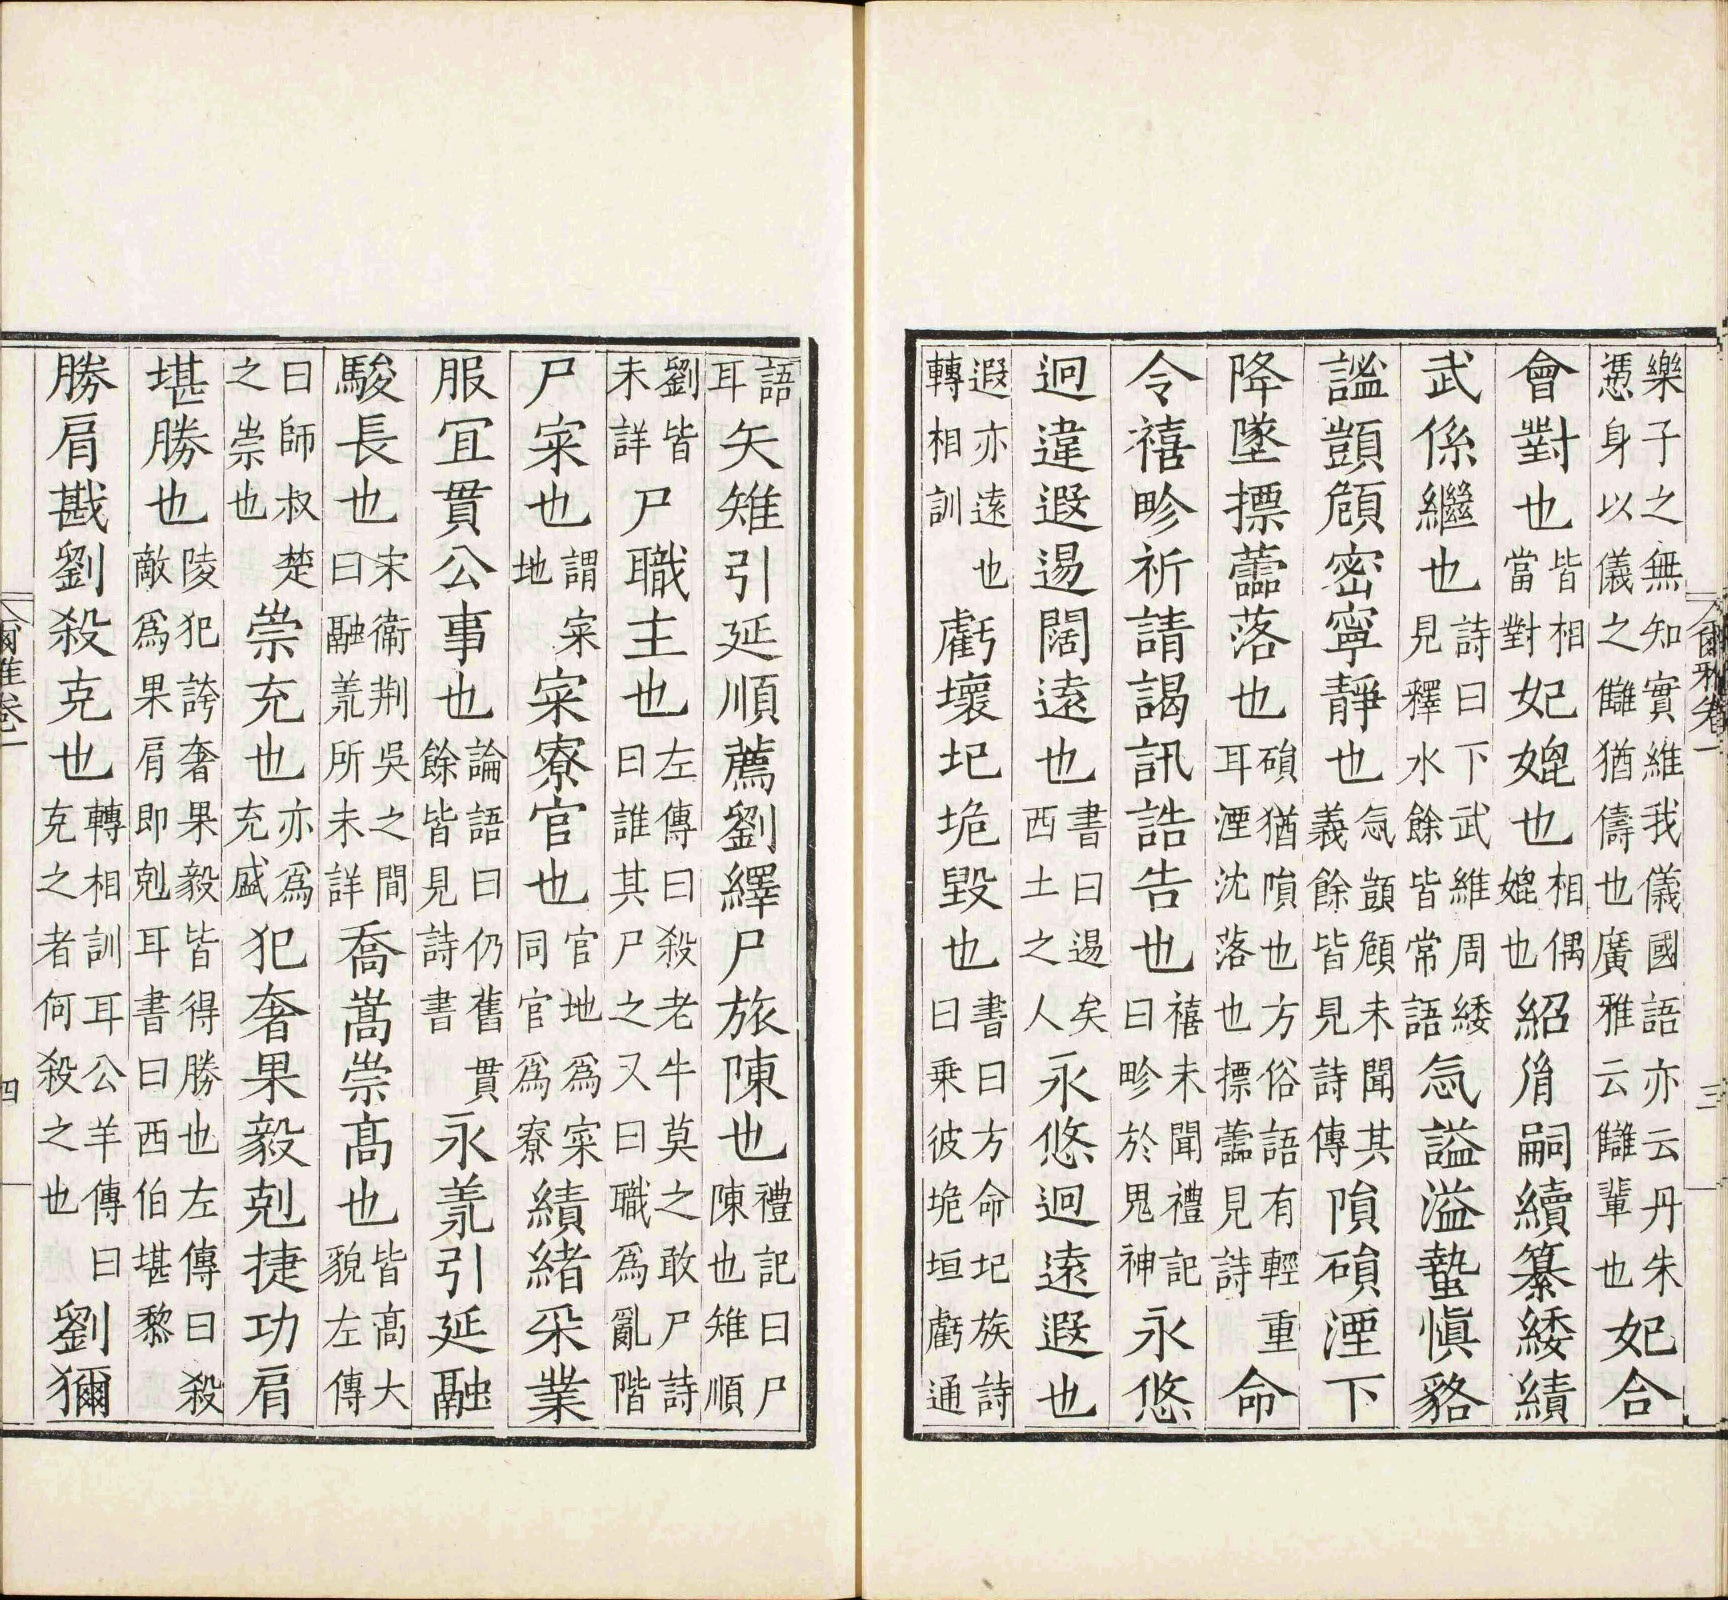 爾雅卷一 三
樂子之無知實維我儀國語亦云丹朱憑身以儀之讎猶儔也廣雅云讎輩也妃合
會對也皆相當對妃媲也相偶媲也紹胤嗣續纂緌績
武係繼也詩曰下武維周緌見釋水餘皆常語忥謚溢蟄慎貉
謐顗頠密寧靜也忥顗頠未聞其義餘皆見詩傳隕磒湮下
降墜摽蘦落也磒猶隕也方俗語有輕重耳湮沈落也摽蘦見詩命
令禧畛祈請謁訊誥告也禧未聞禮記曰畛於鬼神永悠
迥違遐逷闊遠也書曰逷矣西土之人永悠迥遠遐也
遐亦遠也轉相訓虧壞圮垝毀也書曰方命圮族詩曰乘彼垝垣虧通
語耳矢雉引延順薦劉繹尸旅陳也禮記曰尸陳也雉順
劉皆未詳尸職主也左傳曰殺老牛莫之敢尸詩曰誰其尸之又曰職爲亂階
尸寀也謂寀地寀寮官也官地爲寀同官爲寮績緒采業
服宜貫公事也論語曰仍舊貫餘皆見詩書永羕引延融
駿長也宋衞荆吳之間曰融羕所未詳喬嵩崇高也皆高大貌左傳
曰師叔楚之崇也崇充也亦爲充盛犯奢果毅剋捷功肩
堪勝也陵犯誇奢果毅皆得勝也左傳曰殺敵爲果肩即剋耳書曰西伯堪黎
勝肩戡劉殺克也轉相訓耳公羊傳曰克之者何殺之也劉獮
爾雅卷一 四